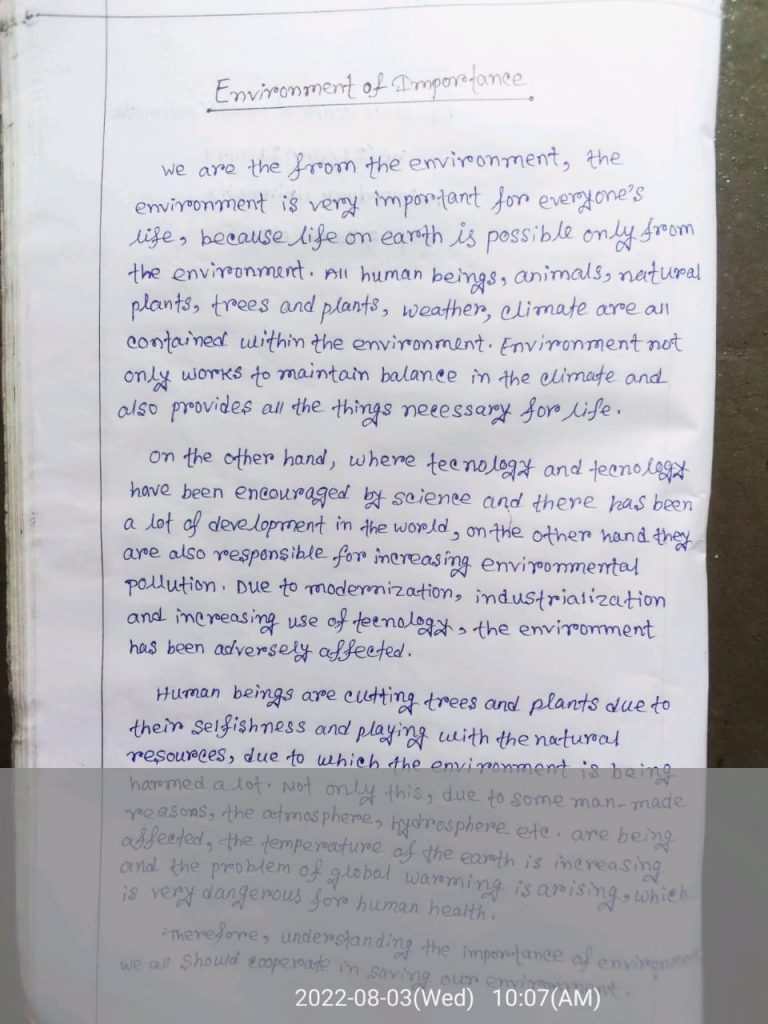 Environment of Importance
we are the from the environment, the
environment is very important for everyone's
life, because life on earth is possible only from
the environment. All human beings, animals, natural
plants, trees and plants, weather, climate are all
contained within the environment. Environment not
only works to maintain balance in the climate and
also provides all the things necessary for life.
On the other hand, where tecnology and tecnology
have been encouraged by science and there has been
a lot of development in the world, on the other hand they
are also responsible for increasing environmental
pollution. Due to modernization, industrialization
and increasing use of tecnology, the environment
has been adversely affected.
Human beings are cutting trees and plants due to
their selfishness and playing with the natural
resources, due to which the environment is being
harmed a lot. Not only this, due to some man-made
reasons, the atmosphere, hydrosphere etc. are being
affected, the temperature of the earth is increasing
and the problem of global warming is arising, which
is very dangerous for human health.
Therefore, understanding the importance of environment
we all should cooperate in saving our environment.
2022-08-03(Wed) 10:07(AM)